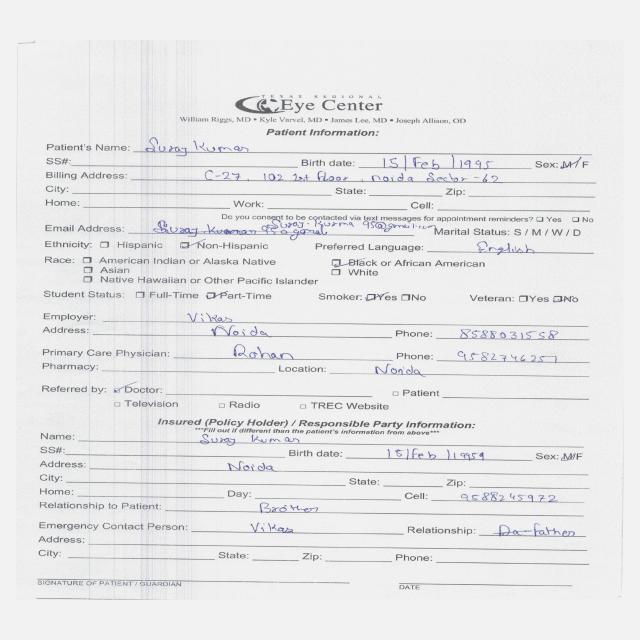 TEXAS REGIONAL
Eye Center
William Riggs, MD • Kyle Varvel, MD • James Lee, MD • Joseph Allison, OD
Patient Information:
Patient's Name: Suraj Kumar
SS#: Birth date: 15/Feb/1995 Sex: M/F
Billing Address: C-27, 102 1st Floor, Noida Sector-62
City: State: Zip:
Home: Work: Cell:
Do you consent to be contacted via text messages for appointment reminders? ☐ Yes ☐ No
Email Address: Marital Status: S / M / W / D
Ethnicity: ☐ Hispanic ☑ Non-Hispanic Preferred Language: English
Race: ☐ American Indian or Alaska Native ☑ Black or African American
☐ Asian ☐ White
☐ Native Hawaiian or Other Pacific Islander
Student Status: ☐ Full-Time ☑ Part-Time Smoker: ☑Yes ☐No Veteran: ☐Yes ☑No
Employer: Vikas
Address: Noida Phone: 8588031558
Primary Care Physician: Rohan Phone: 9582746257
Pharmacy: Location: Noida
Referred by: ☑ Doctor: ☐ Patient
☐ Television ☐ Radio ☐ TREC Website
Insured (Policy Holder) / Responsible Party Information:
***Fill out if different than the patient's information from above***
Name: Suraj Kumar
SS#: Birth date: 15/Feb/ Sex: M/F
Address: Noida
City: State: Zip:
Home: Day: Cell: 9588245972
Relationship to Patient: Brother
Emergency Contact Person: Vikas Relationship: father
Address:
City: State: Zip: Phone:
SIGNATURE OF PATIENT / GUARDIAN DATE